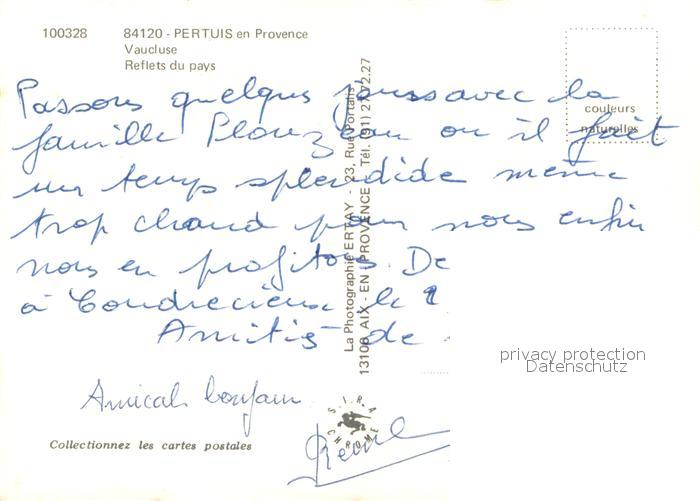 100328 84120 - PERTUIS en Provence
Vaucluse
Reflets du pays
couleurs
naturelles
Passons quelques jours avec la
famille Plouzeau ou il fait
un temps splendide meme
trop chaud pour nous enfin
nous en profitons. De
à le
Amitiés de
Amical bonjour
René
La Photographie ERTAY - 23, Rue Portalis
13100 AIX - EN PROVENCE - Tél. (91) 27.72.27
SIRA
CHROME
Collectionnez les cartes postales
privacy protection
Datenschutz